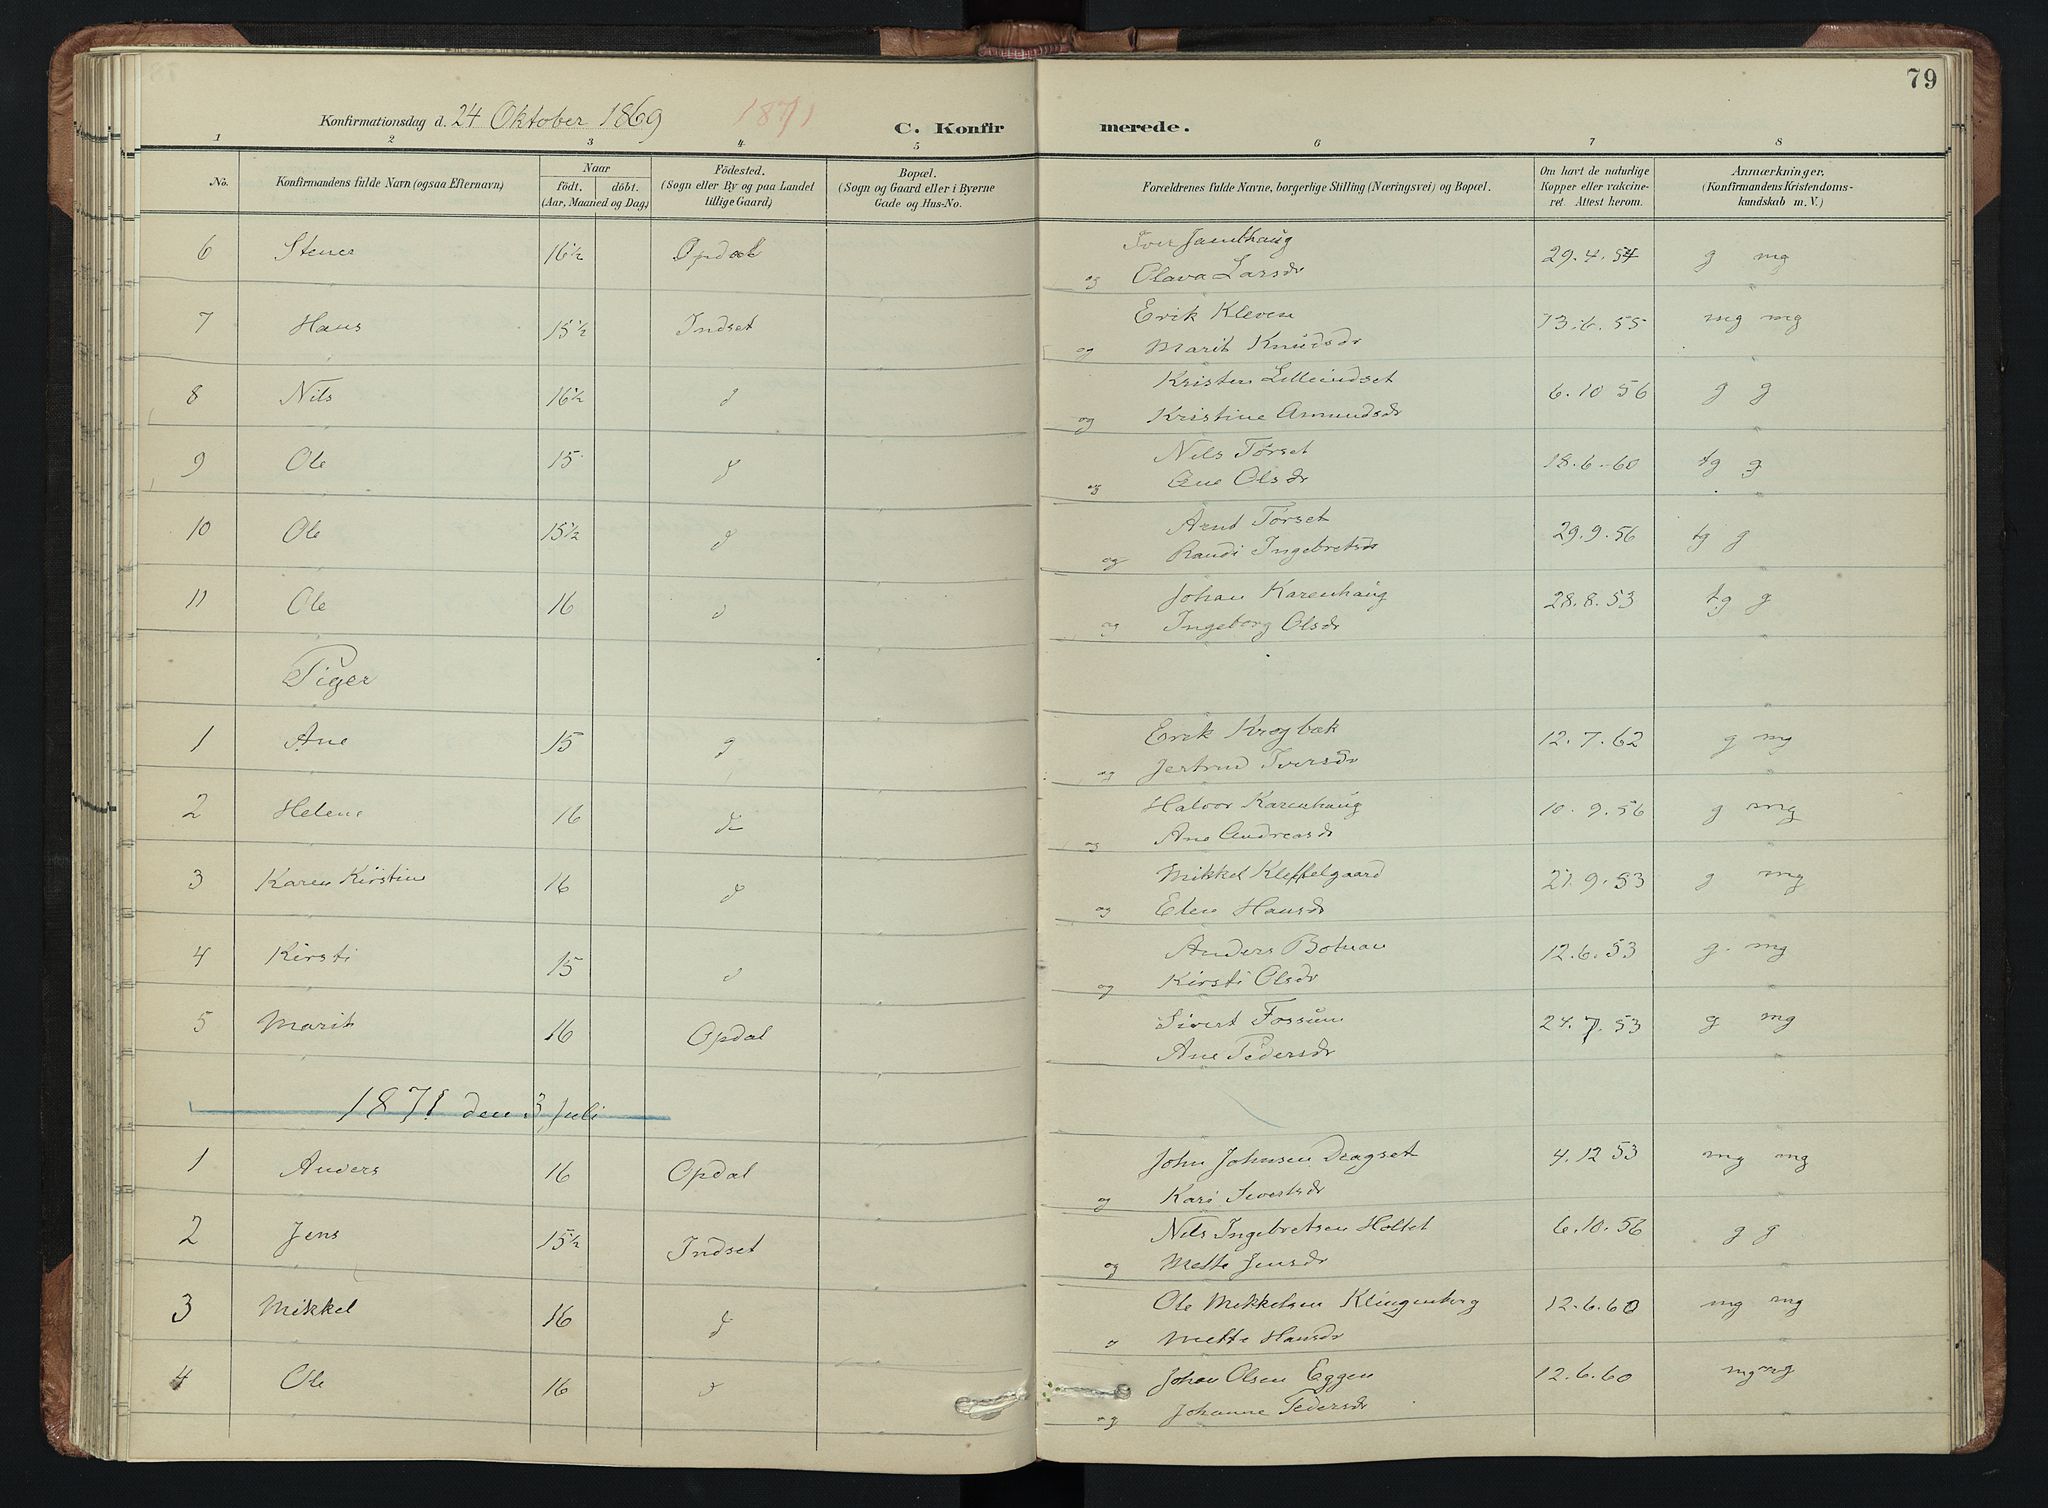 79
Konfirmationsdag d. 24 Oktober 1869 1871
C. Konfir merede.
1 2 3 4 5 6 7 8
No. Konfirmandens fulde Navn (ogsaa Efternavn) Naar født. døbt. (Aar, Maaned og Dag) Fødested. (Sogn eller By og paa Landet tillige Gaard) Bopæl. (Sogn og Gaard eller i Byerne Gade og Hus-No. Forældrenes fulde Navne, borgerlige Stilling (Næringsvei) og Bopæl. Om havt de naturlige Kopper eller vakcineret. Attest herom. Anmærkninger. (Konfirmandens Kristendomskundskab m. V.)
6 Stener 16½ Opdal Iver Jamthaug 29.4.54 g mg
og Olava Larsdr
7 Hans 15½ Indset Erik Kleven 13.6.55 mg mg
og Marit Knudsdr
8 Nils 16½ Kristen Lilleindset 6.10 56 g g
og Kristine Amundsdr
9 Ole 15 Nils Tørset 18.6.60 tg g
og Ane Olsdr
10 Ole 15½ Arnt Tørset 29.9.56 tg g
og Randi Ingebretsdr
11 Ole 16 Johan Karenhaug 28.8.53 tg g
og Ingeborg Olsdr
Piger
1 Ane 15 Erik Krogbæk 12.7.62 g mg
og Jertrud Iversdr
2 Helene 16 Halvor Karenhaug 10.9.56 g mg
og Ane Andreasdr
3 Karen Kirstine 16 Mikkel Kleffelgaard 27.9.53 g mg
og Elen Hansdr
4 Kirsti 15 Anders Botnan 12.6.53 g. mg
og Kirsti Olsdr
5 Marit 16 Opdal Sivert Fossum 24.7.53 g mg
Ane Pedersdr
1871 den 3 Juli
1 Anders 16 Opdal John Johnsen Dragset 4.12 53 mg mg
og Kari Sivertsdr
2 Jens 15½ Indset Nils Ingebretsen Holtet 6.10.56 g g
og Mette Jensdr
3 Mikkel 16 Ole Mikkelsen Klingenberg 12.6.60 mg mg
o Mette Hansdr
4 Ole 16 Johan Olsen Eggen 12.6.60 mg mg
og Johanne Pedersdr